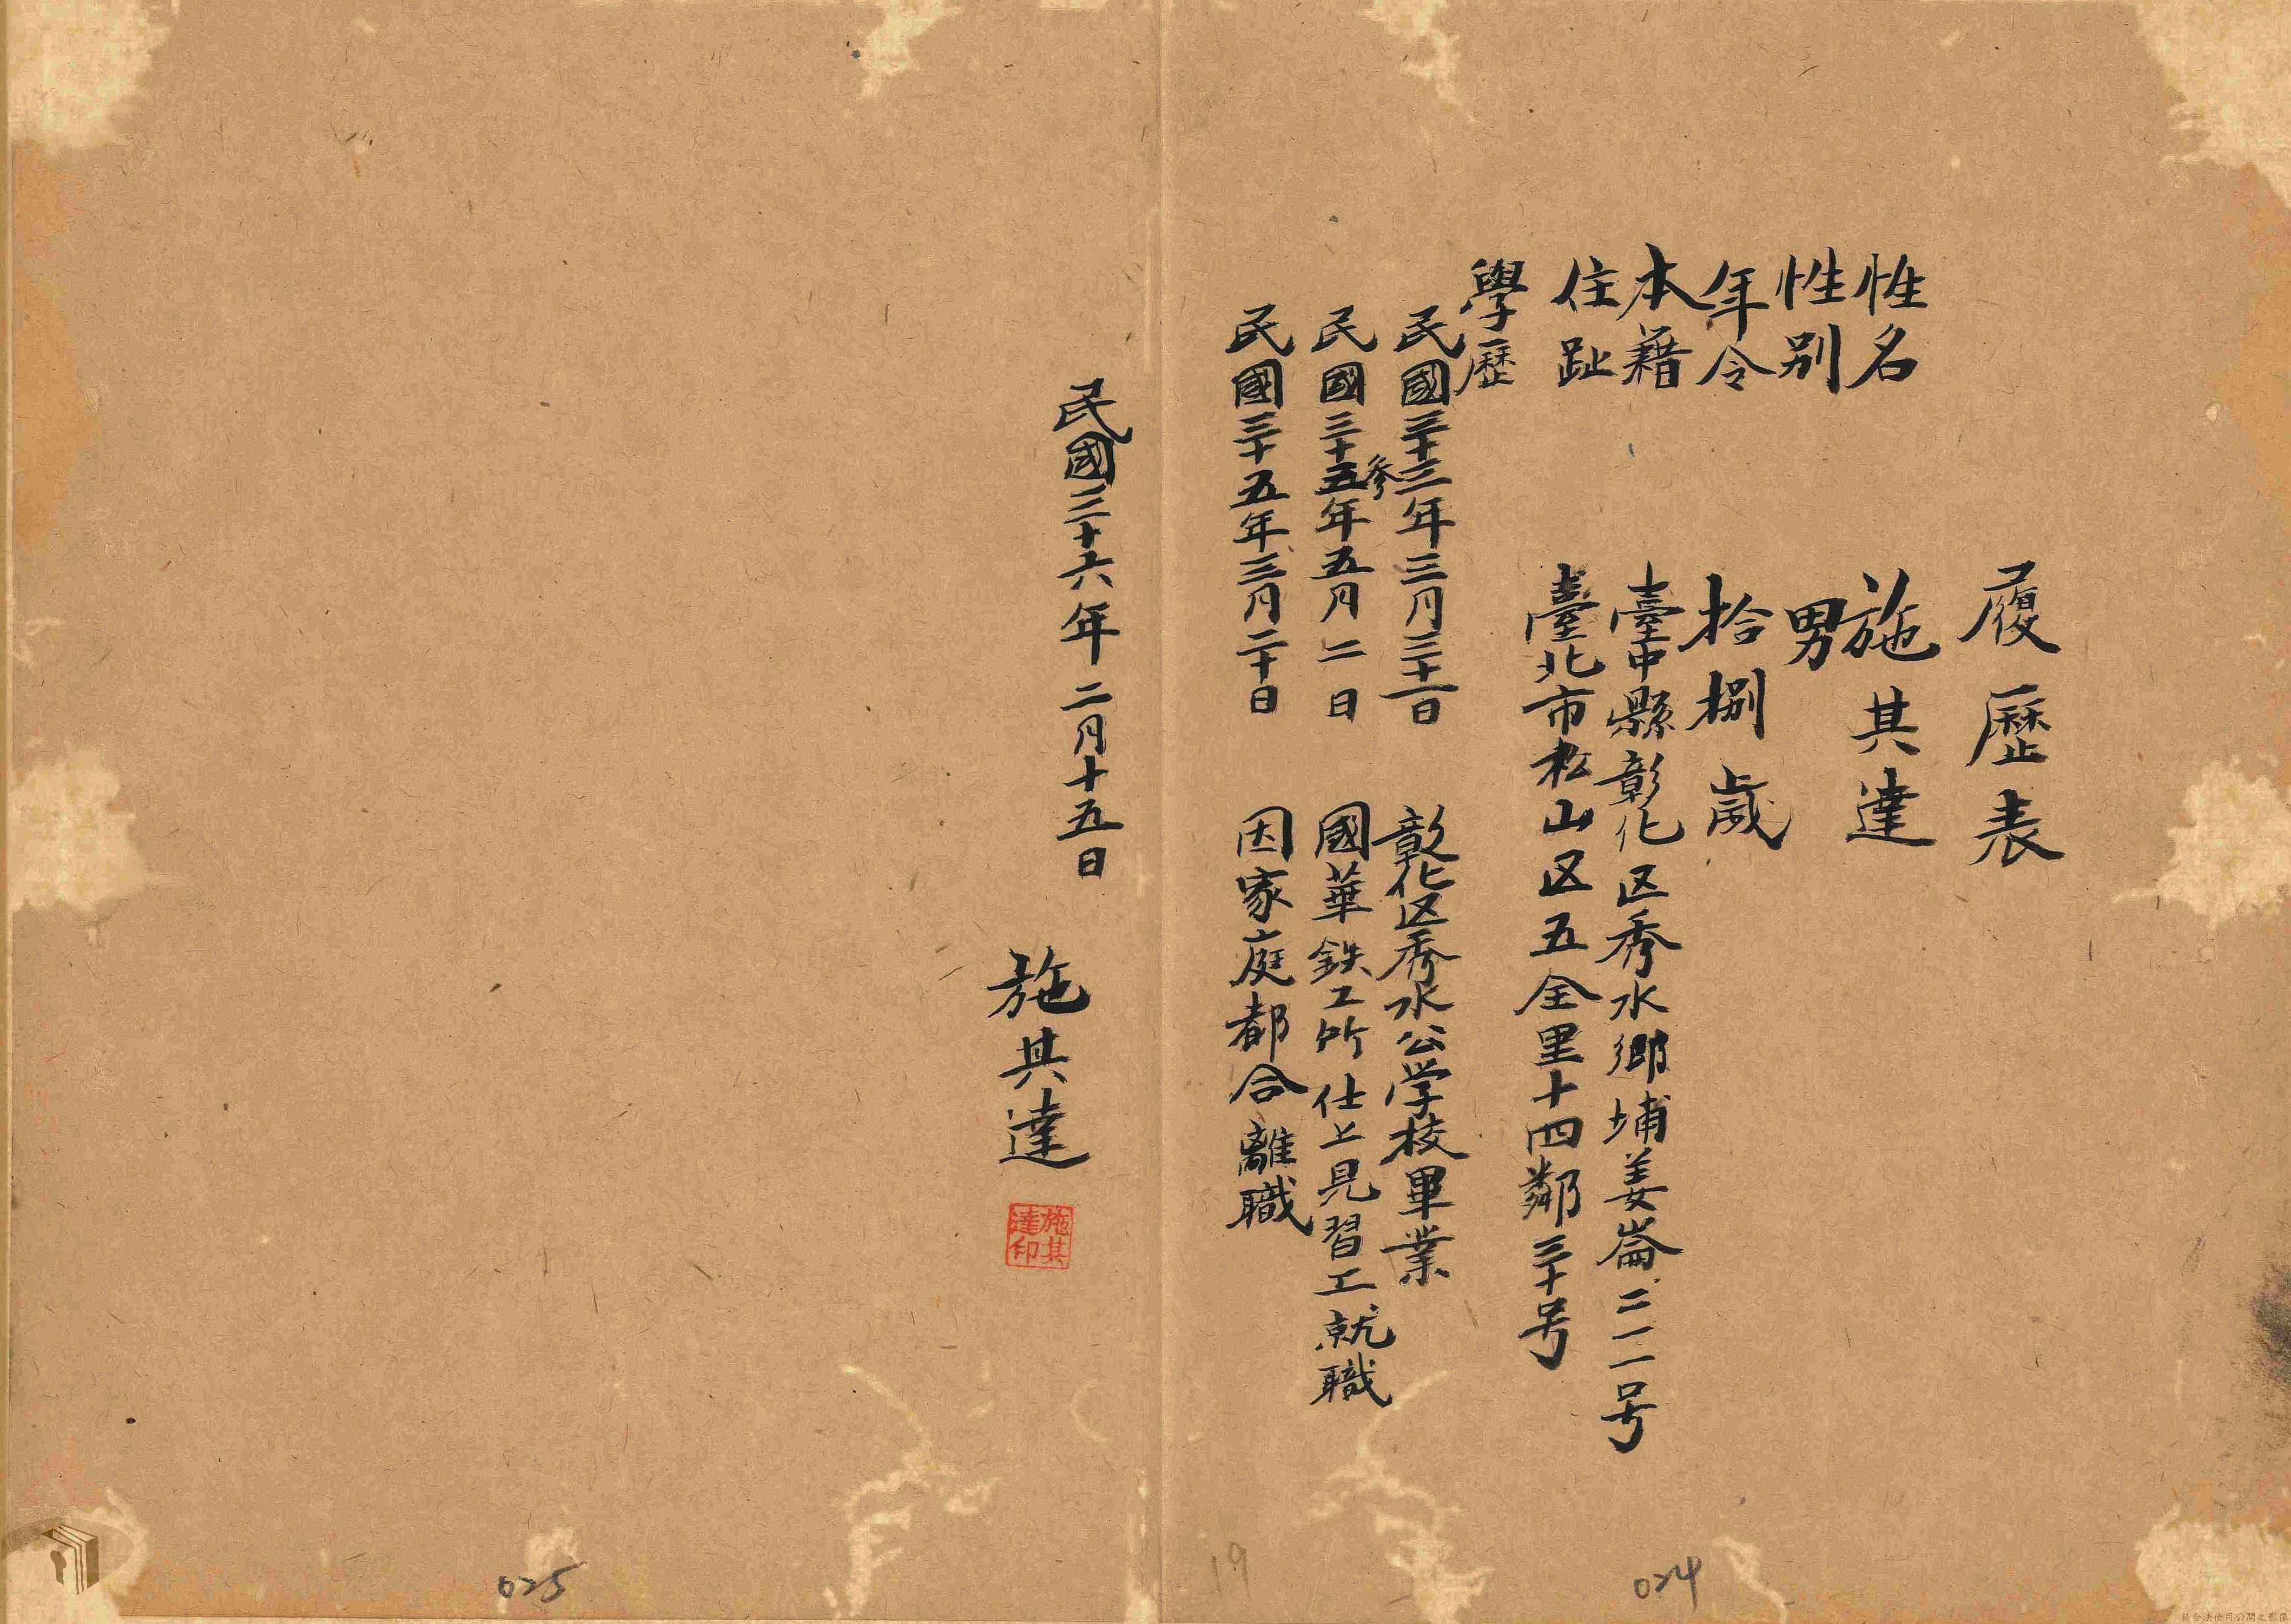 履歷表
性名 施其達
性別 男
年令 拾捌歲
本藉 臺中縣彰化区秀水鄉埔姜崙二一一号
住趾 臺北市松山区五全里十四鄰三十号
學歷
民國三十三年三月三十一日 彰化区秀水公学校畢業
民國三十五年五月二日 國華鉄工所仕上見習工就職
參
民國三十五年三月二十日 因家庭都合離職
民國三十六年二月十五日
施其達
施其達印
025
19
024
請合法使用公開之影像